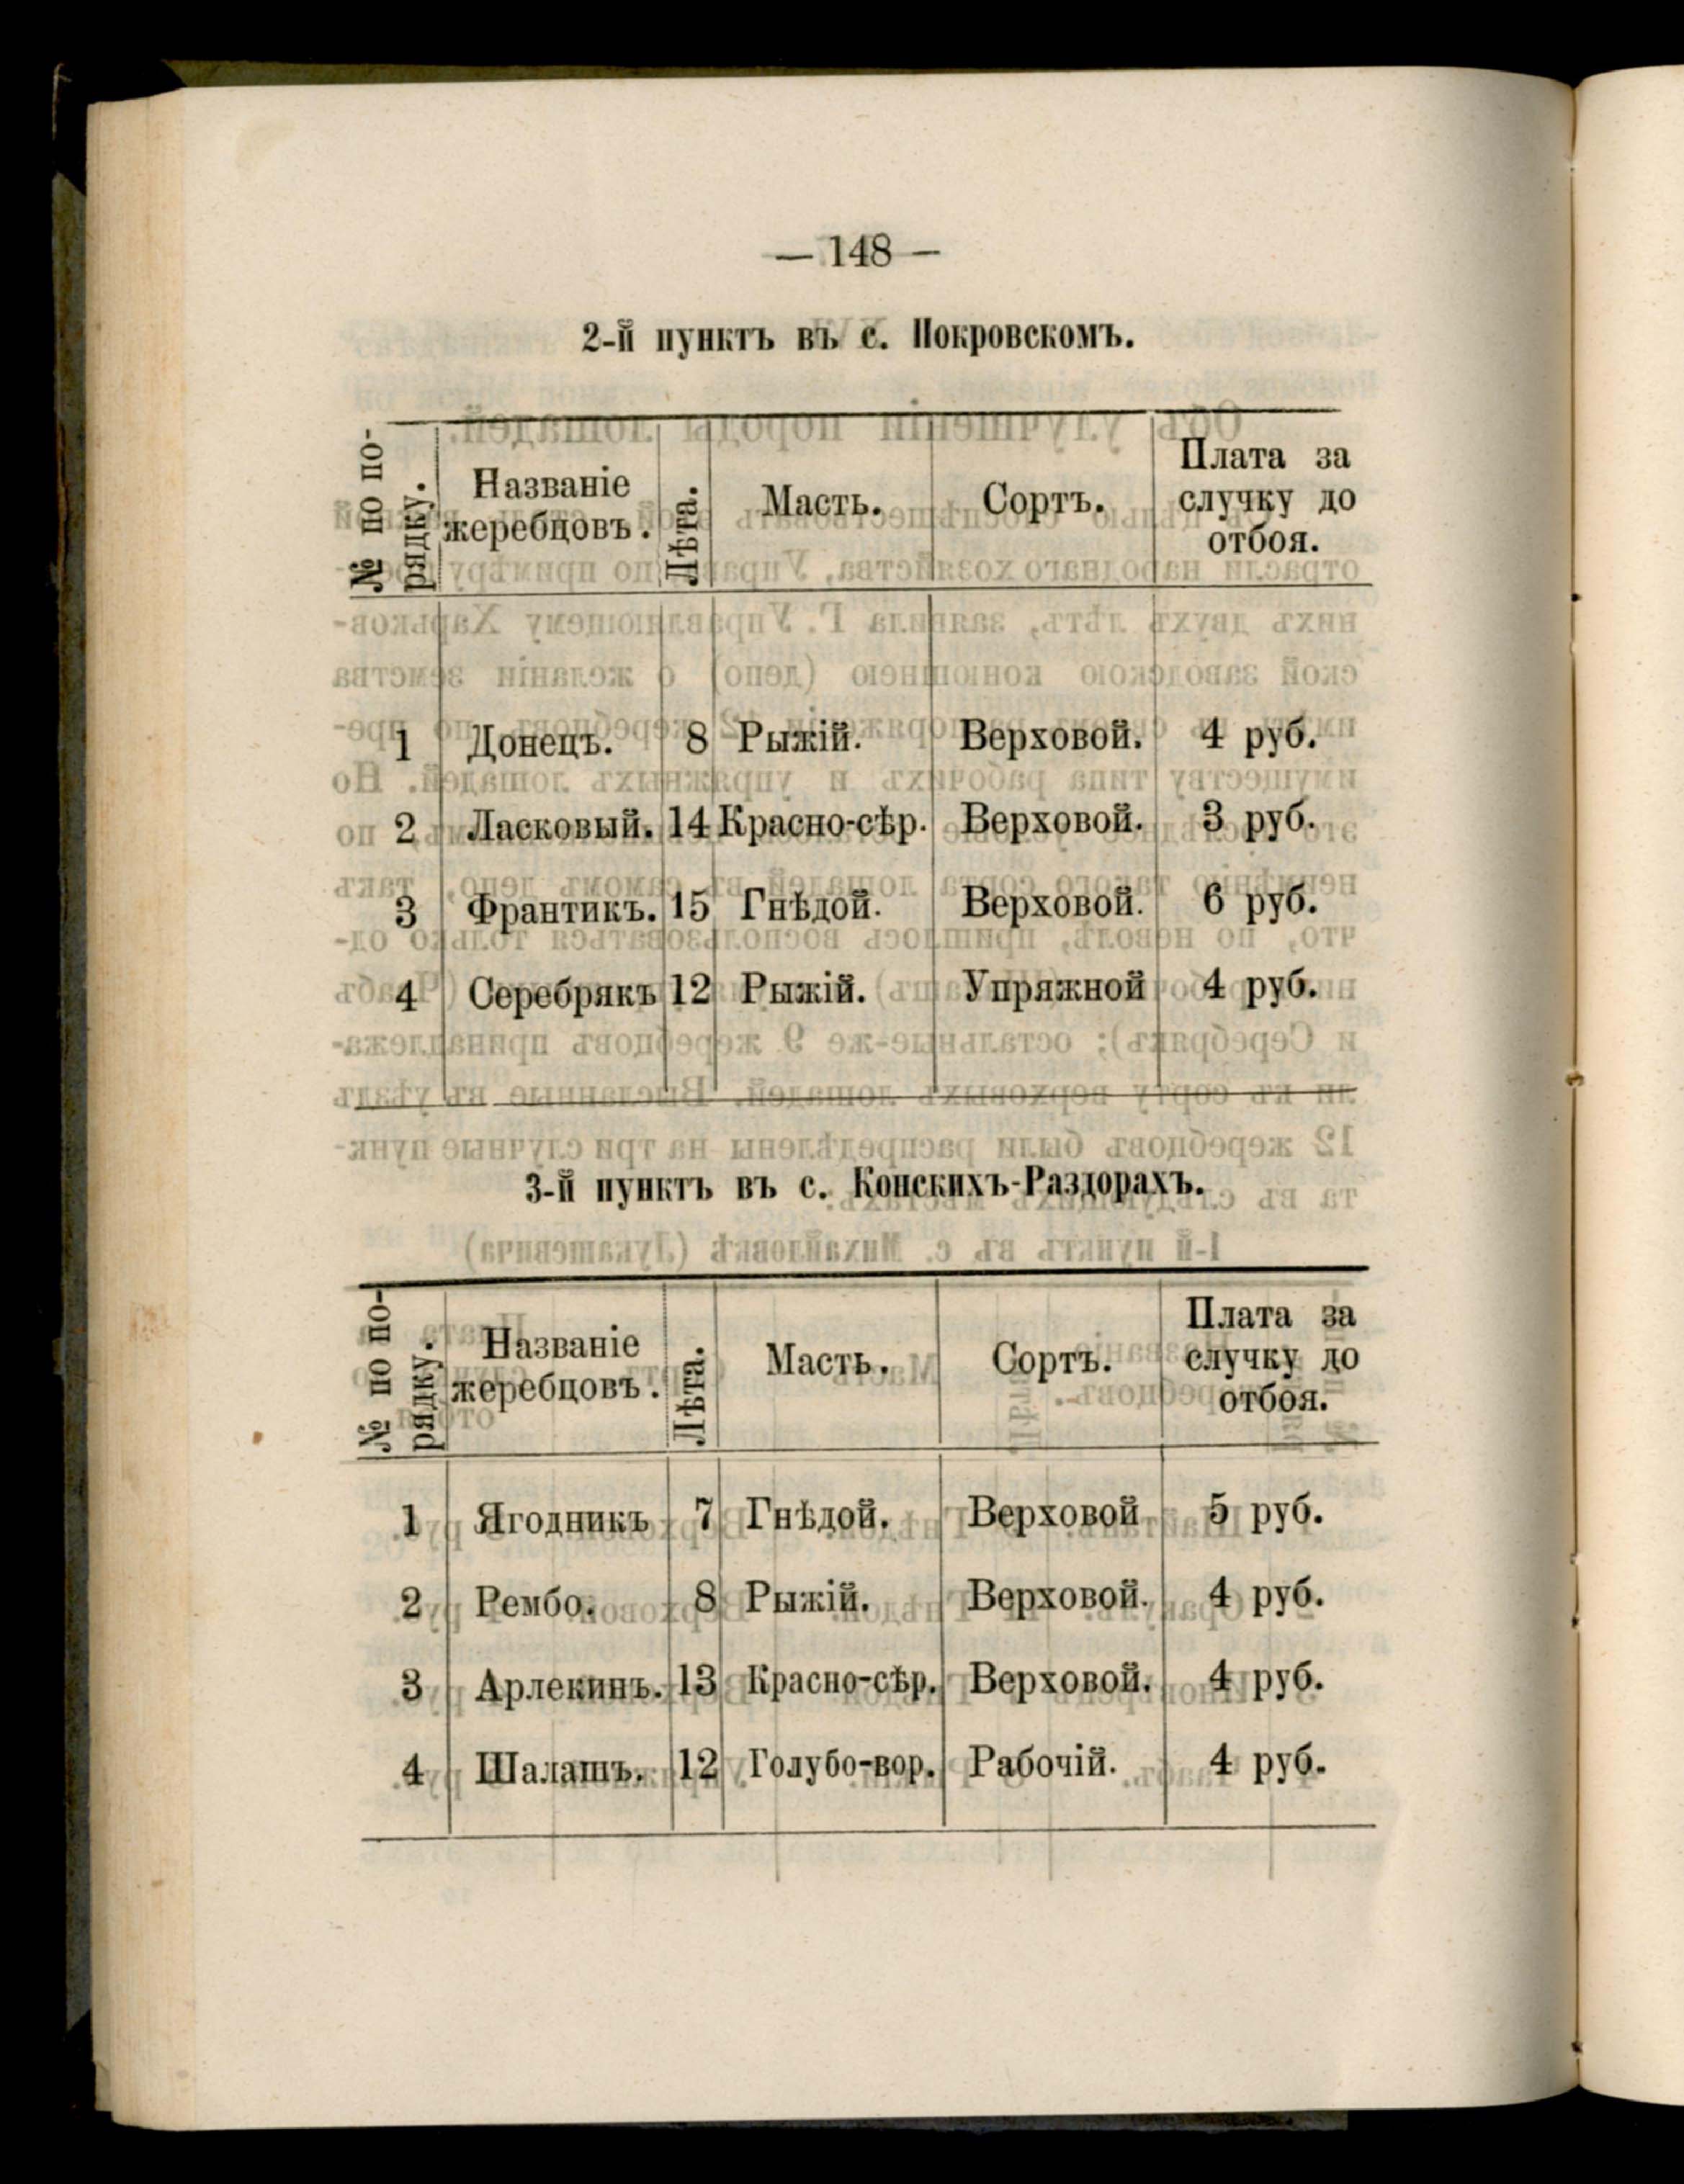 — 148 —
2-й пунктъ въ с. Покровскомъ.
№ по по-
рядку.
Названіе
жеребцовъ.
Лѣта.
Масть.
Сортъ.
Плата за
случку до
отбоя.
1 Донецъ. 8 Рыжій. Верховой. 4 руб.
2 Ласковый. 14 Красно-сѣр. Верховой. 3 руб.
3 Франтикъ. 15 Гнѣдой. Верховой. 6 руб.
4 Серебрякъ 12 Рыжій. Упряжной 4 руб.
3-й пунктъ въ с. Конскихъ-Раздорахъ.
№ по по-
рядку.
Названіе
жеребцовъ.
Лѣта.
Масть.
Сортъ.
Плата за
случку до
отбоя.
1 Ягодникъ 7 Гнѣдой. Верховой 5 руб.
2 Рембо. 8 Рыжій. Верховой. 4 руб.
3 Арлекинъ. 13 Красно-сѣр. Верховой. 4 руб.
4 Шалашъ. 12 Голубо-вор. Рабочій. 4 руб.